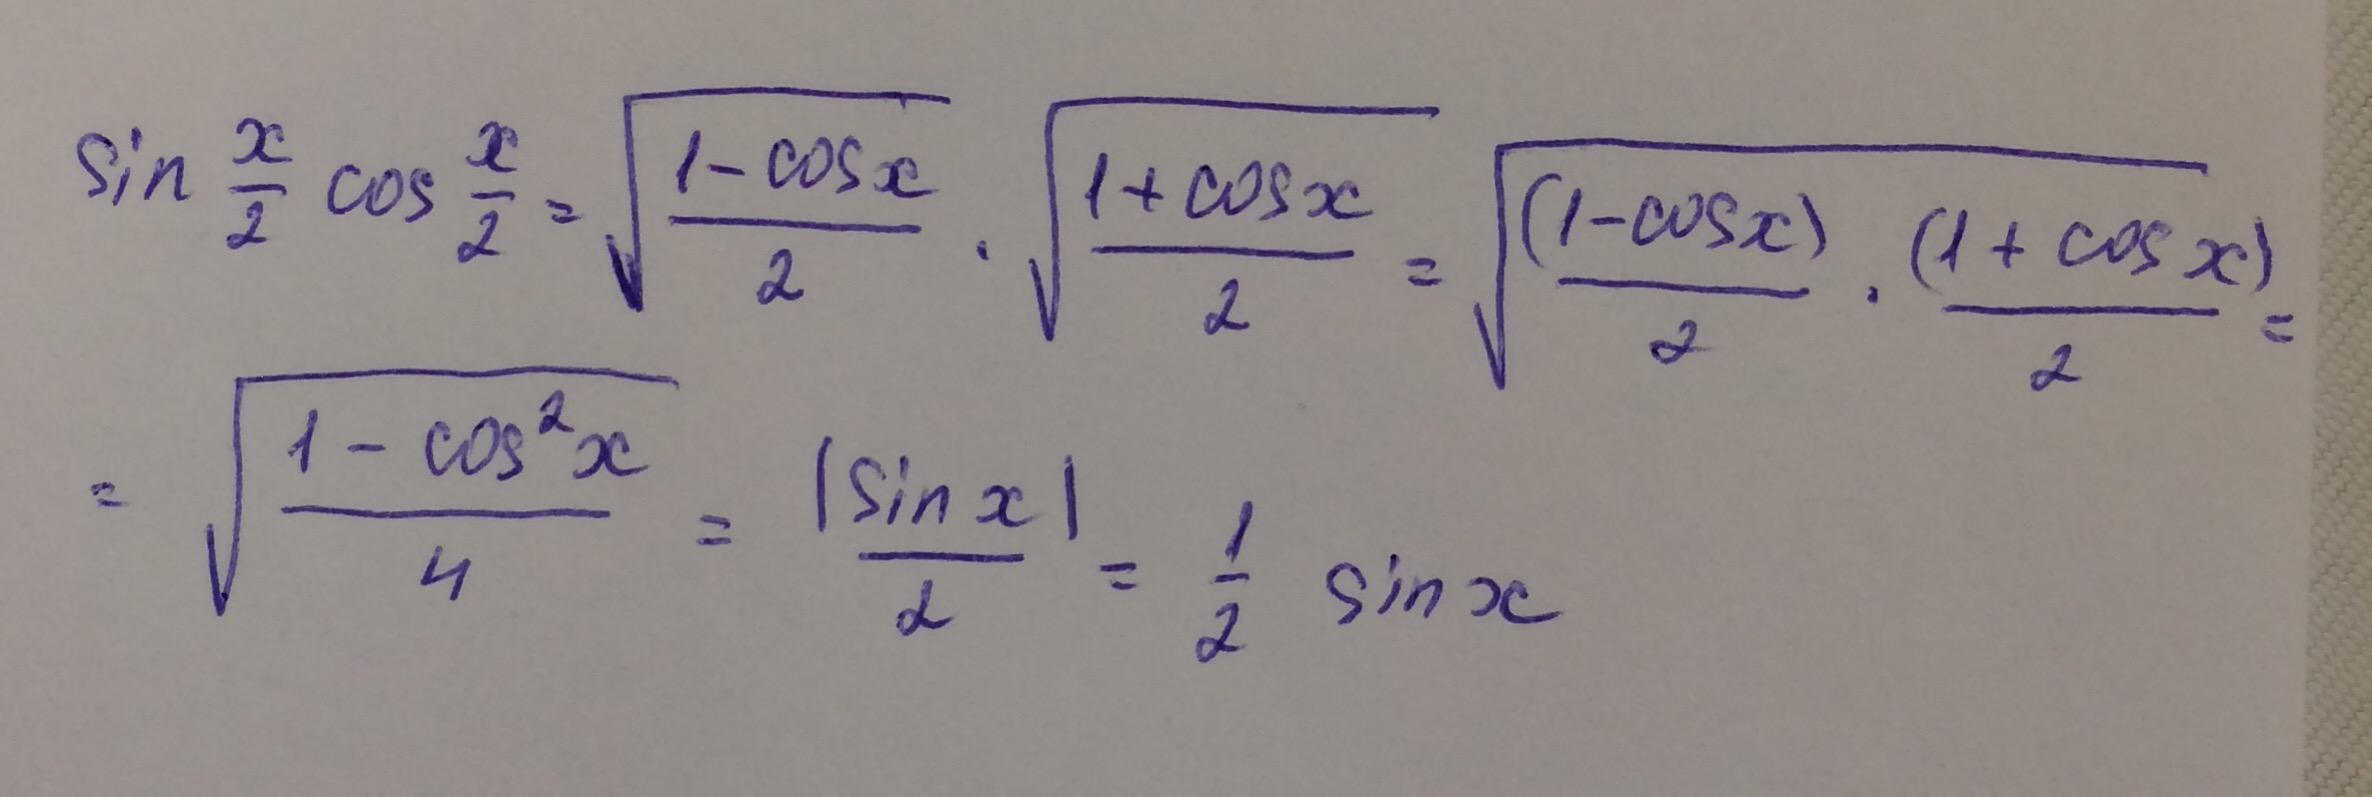 sin x/2 cos x/2 = √((1-cosx)/2) · √((1+cosx)/2) = √((1-cosx)/2 · (1+cosx)/2) =
= √((1-cos²x)/4) = |sinx|/2 = 1/2 sinx